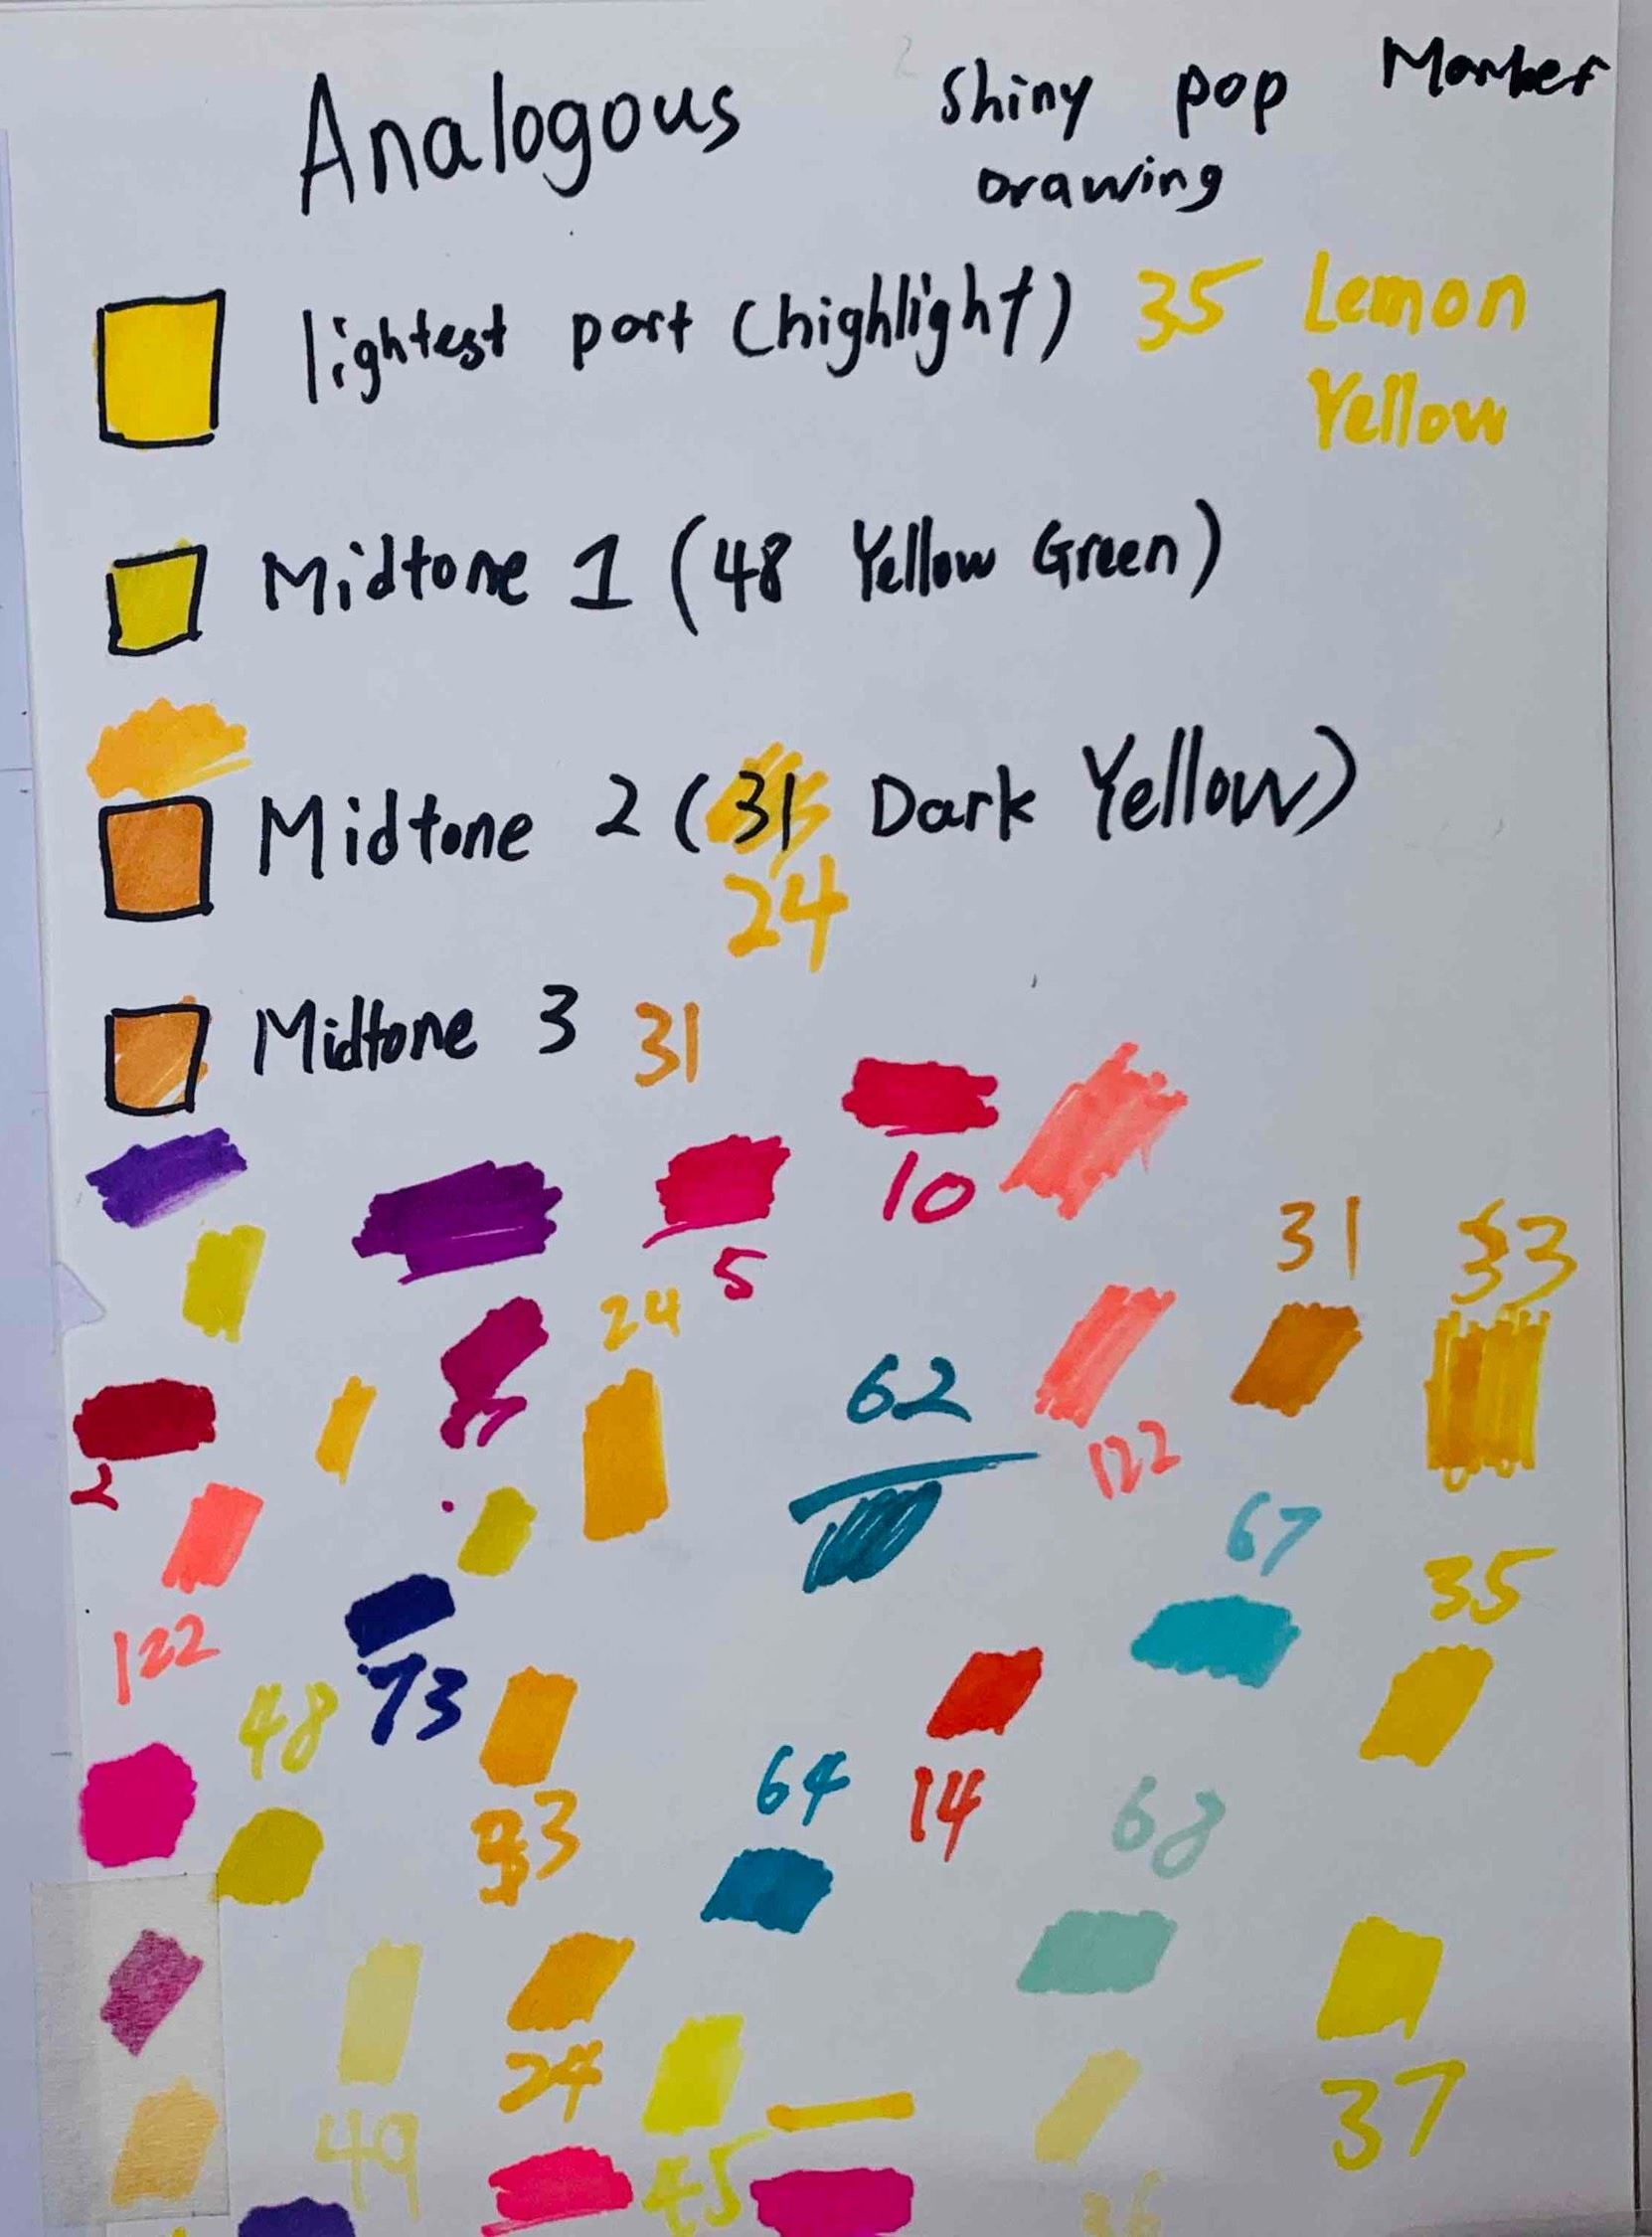 Analogous
Shiny pop Marker
Drawing
lightest part (highlight) 35 Lemon
Yellow
Midtone 1 (48 Yellow Green)
Midtone 2 (31 Dark Yellow)
24
Midtone 3 31
10
5
31 33
24
62
122
2
67
35
122
48 73
64 14 68
33
24
37
49
45
36